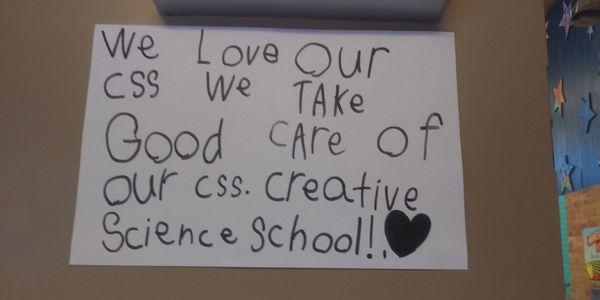 We Love Our
CSS We TAKE
Good CARe of
our css. Creative
Science School!!.